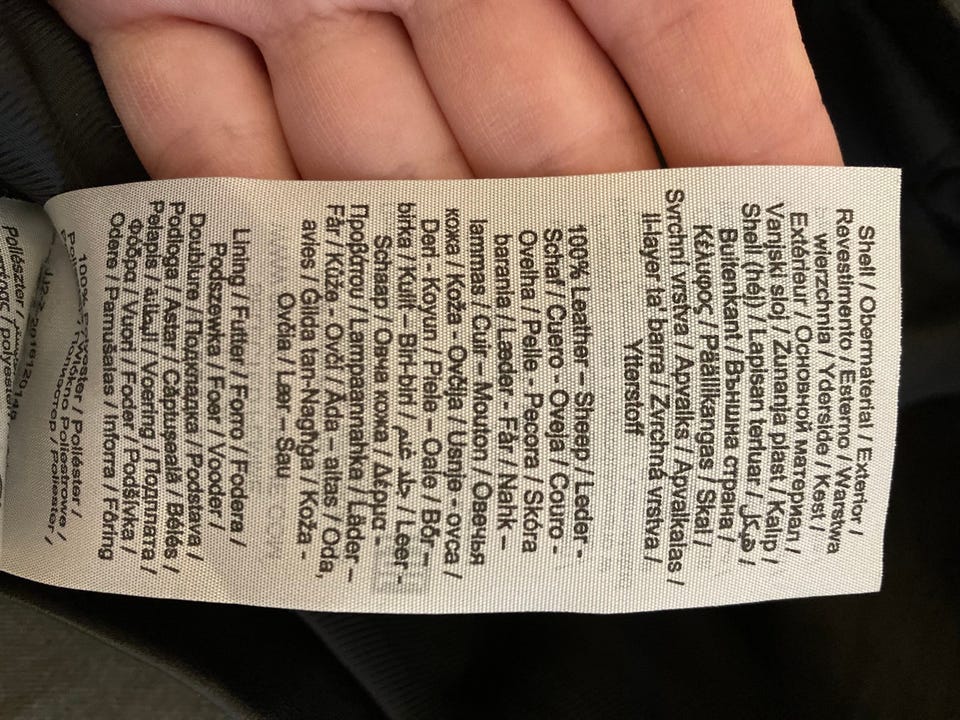 Shell / Obermaterial / Exterior /
Revestimento / Esterno / Warstwa
wierzchnia / Yderside / Kest /
Extérieur / Основной материал /
Vanjski sloj / Zunanja plast / Kalıp /
Shell (héj) / Lapisan terluar / هيكل /
Buitenkant / Външна страна /
Κέλυφος / Päällikangas / Skal /
Svrchní vrstva / Apvalks / Apvalkalas /
Il-layer ta' barra / Zvrchná vrstva /
Ytterstoff
100% Leather – Sheep / Leder -
Schaf / Cuero - Oveja / Couro -
Ovelha / Pelle - Pecora / Skóra
barania / Læder - Får / Nahk –
lammas / Cuir – Mouton / Овечья
кожа / Koža - Ovčija / Usnje - ovca /
Deri - Koyun / Piele – Oaie / Bőr –
birka / Kulit – Biri-biri / جلد غنم / Leer -
Schaap / Овча кожа / Δέρμα -
Προβάτου / Lampaannahka / Läder –
Får / Kůže - Ovčí / Āda – aitas / Oda,
avies / Ġilda tan-Nagħġa / Koža -
Ovčia / Lær – Sau
Lining / Futter / Forro / Fodera /
Podszewka / Foer / Vooder /
Doublure / Подкладка / Podstava /
Podloga / Astar / Căptuşeală / Bélés /
Pelapis / البطانة / Voering / Подплата /
Φόδρα / Vuori / Foder / Podšívka /
Odere / Pamušalas / Inforra / Fóring
100% Polyester / Poliéster /
Włókno Poliestrowe /
Полиэстер / Poliester /
Poliészter /
polyester